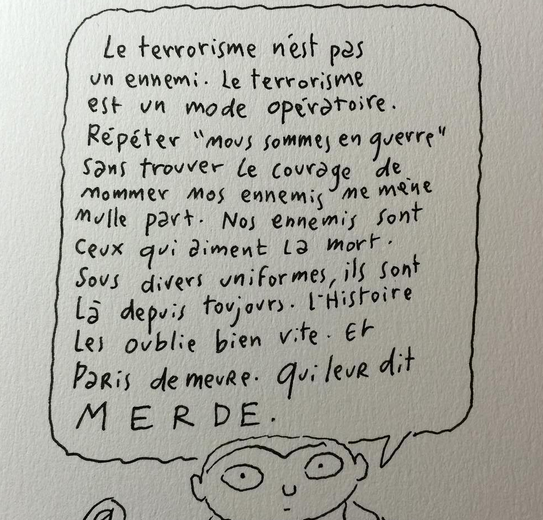 Le terrorisme n'est pas
un ennemi. Le terrorisme
est un mode opératoire.
Répéter "nous sommes en guerre"
sans trouver le courage de
nommer nos ennemis ne mène
nulle part. Nos ennemis sont
ceux qui aiment la mort.
Sous divers uniformes, ils sont
là depuis toujours. L'Histoire
les oublie bien vite. Et
Paris demeure. Qui leur dit
MERDE.